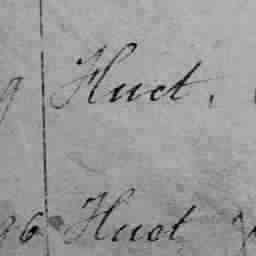 9 Huet.
96 Huet